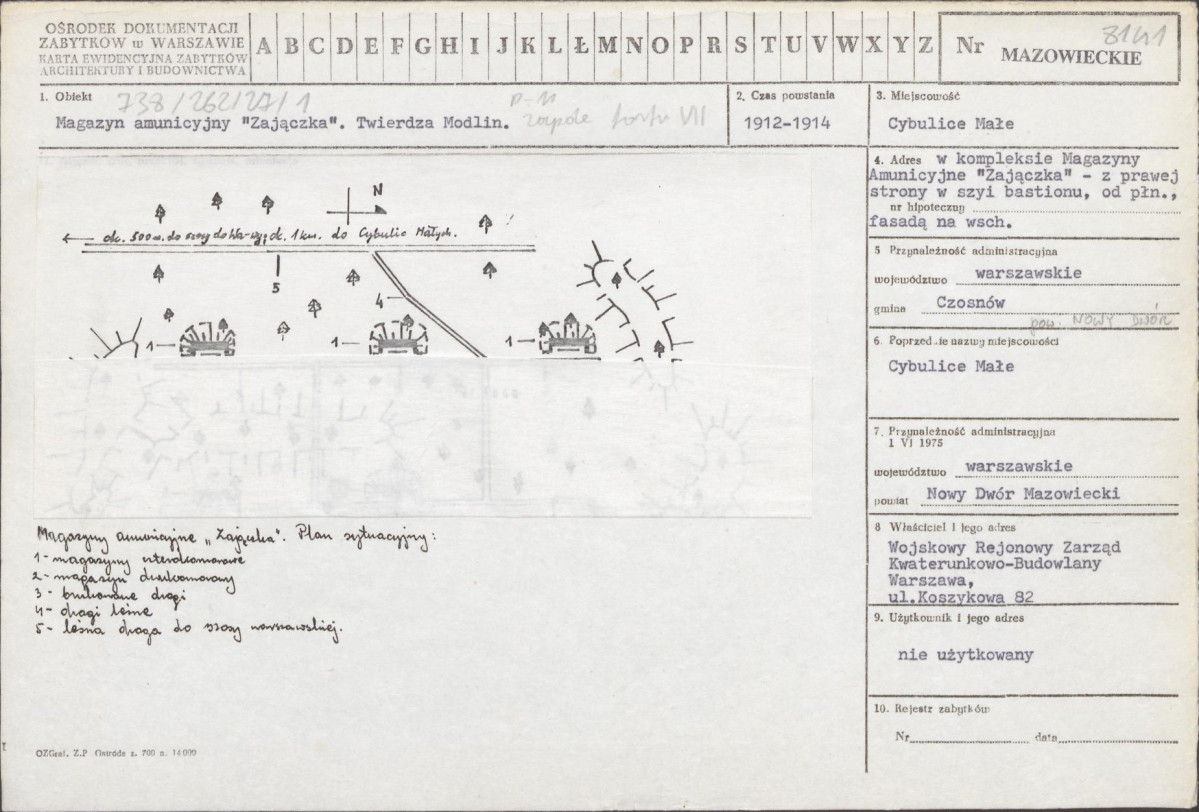 OŚRODEK DOKUMENTACJI
ZABYTKÓW w WARSZAWIE
KARTA EWIDENCYJNA ZABYTKÓW
ARCHITEKTURY I BUDOWNICTWA
A B C D E F G H I J K L Ł M N O P R S T U V W X Y Z
Nr 8141
MAZOWIECKIE
1. Obiekt 738/262/27/1
Magazyn amunicyjny "Zajączka". Twierdza Modlin.
P-11
zapole fortu VII
2. Czas powstania
1912-1914
3. Miejscowość
Cybulice Małe
4. Adres w kompleksie Magazyny
Amunicyjne "Zajączka" - z prawej
strony w szyi bastionu, od płn.,
nr hipoteczny
fasadą na wsch.
5 Przynależność administracyjna
województwo warszawskie
gmina Czosnów
pow. NOWY DWÓR
6. Poprzednie nazwy miejscowości
Cybulice Małe
7. Przynależność administracyjna
1 VI 1975
województwo warszawskie
powiat Nowy Dwór Mazowiecki
8 Właściciel i jego adres
Wojskowy Rejonowy Zarząd
Kwaterunkowo-Budowlany
Warszawa,
ul.Koszykowa 82
9. Użytkownik i jego adres
nie użytkowany
10. Rejestr zabytków
Nr data
N
ok. 500 m. do szosy do W-wy; ok. 1 km. do Cybulic Małych.
5
4
1
1
1
Magazyny amunicyjne „Zajączka". Plan sytuacyjny:
1 - magazyny czterokomorowe
2 - magazyn dwukomorowy
3 - brukowane drogi
4 - drogi leśne
5 - leśna droga do szosy warszawskiej.
OZGraf. Z.P Ostróda z. 700 n. 14 000